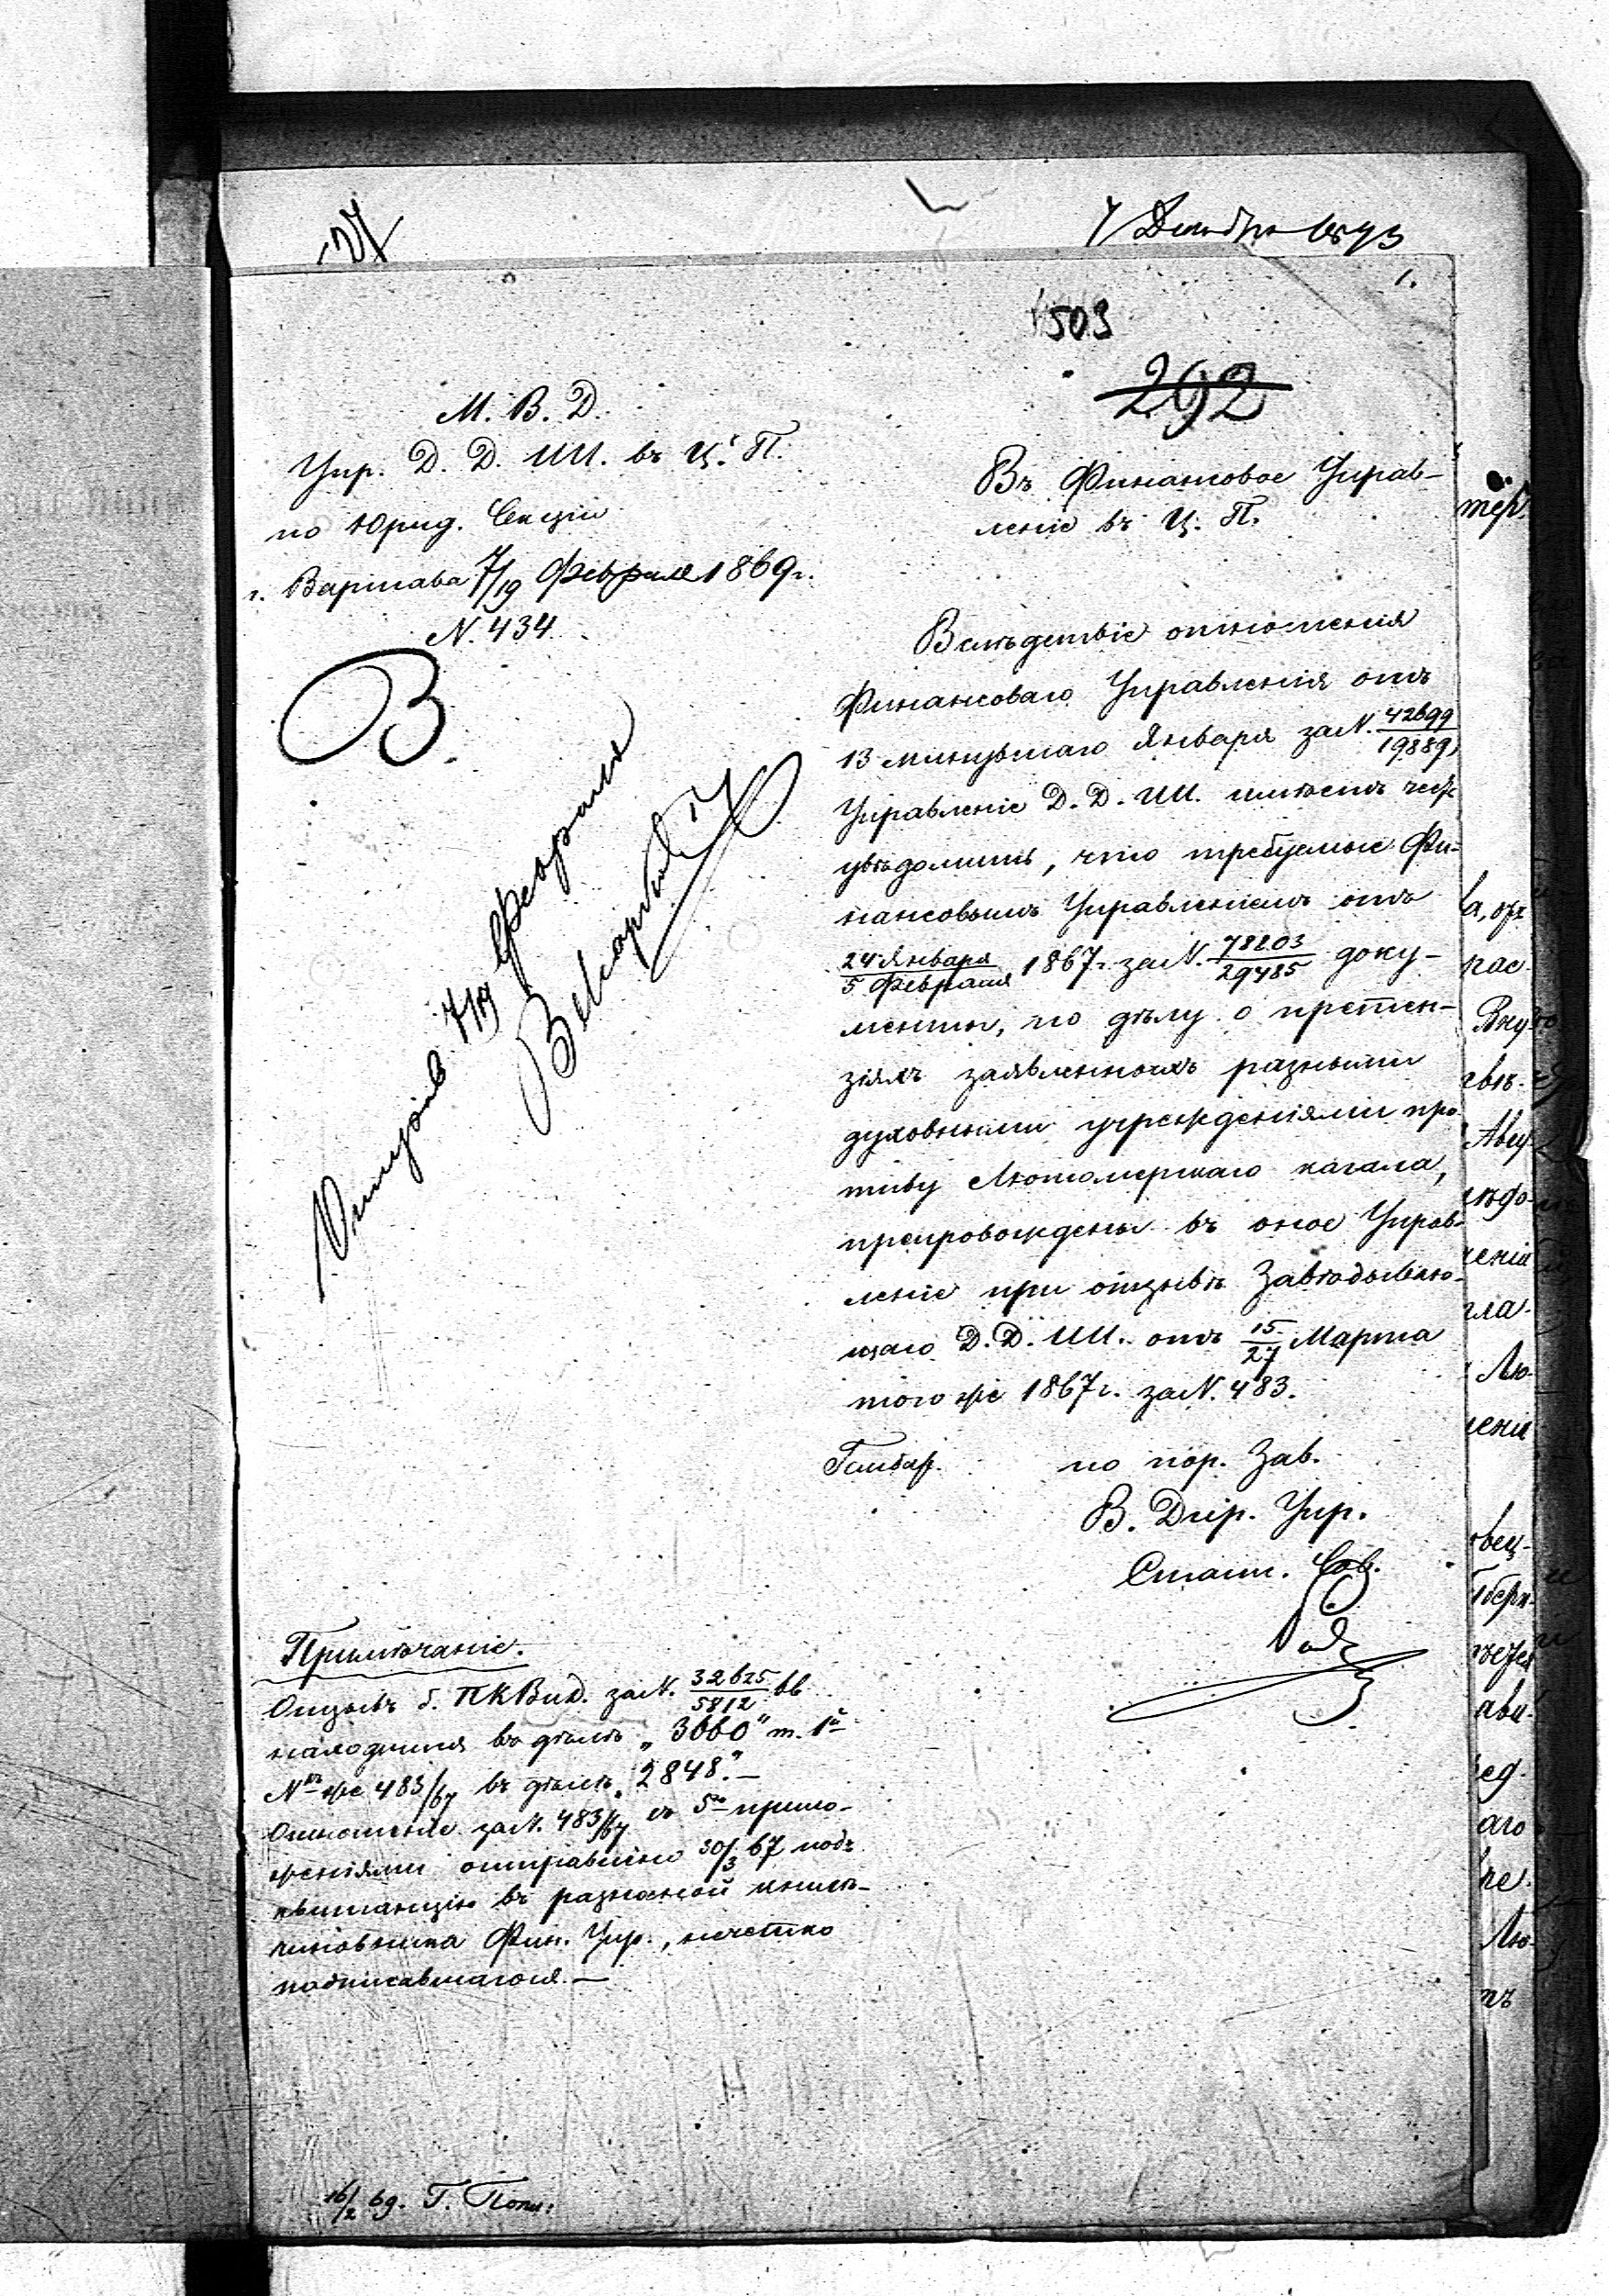 27
7 Декабря 1873
1.
503
292
М. В. Д.
Упр. Д. Д. ИИ. въ Ц. П.
по Юрид. Секціи
г. Варшава 7/19 Февраля 1869 г.
N. 434
В.
Въ Финансовое Управ-
леніе въ Ц. П.
Вслѣдствіе отношенія
Финансоваго Управленія отъ
13 минувшаго Января за N. 42699/19889,
Управленіе Д. Д. ИИ. имѣетъ честь
увѣдомить, что требуемые Фи-
нансовымъ Управленіемъ отъ
24 Января/5 Февраля 1867 г. за N. 78203/29485 доку-
менты, по дѣлу о претен-
зіяхъ заявленныхъ разными
духовными учрежденіями про-
тиву Лютомерскаго кагала,
препровождены въ оное Управ-
леніе при отзывѣ Завѣдываю-
щаго Д. Д. ИИ. отъ 15/27 Марта
того же 1867 г. за N. 483.
по пор. Зав.
В. Дир. Упр.
Статс. Сов.
7/19 Февраля
Примѣчаніе.
Отзывъ б. ПКВиД. за N. 32625/5812
находится въ дѣлѣ „3660" т. 1й
N же 483/67 въ дѣлѣ „2848." —
Отношеніе за N. 483/67 съ 5ю прило-
женіями отправлено 30/3 67 подъ
квитанцію въ разносной книгѣ
чиновника Фин. Упр., нечетко
подписавшагося. —
16/2 69. Г.